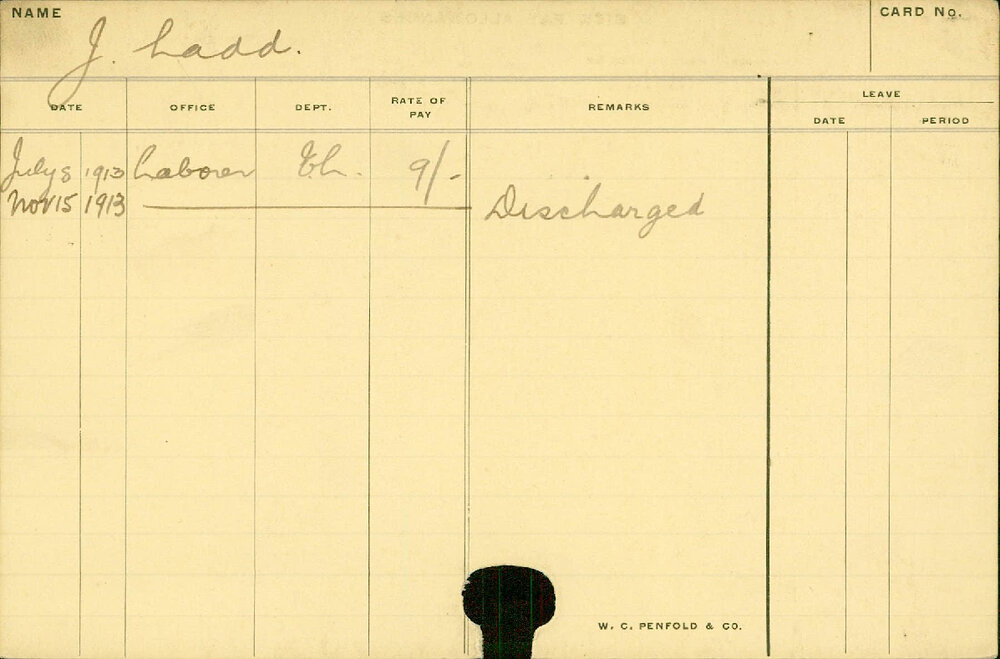 NAME
J. Ladd.
CARD No.
DATE OFFICE DEPT. RATE OF PAY REMARKS LEAVE
DATE PERIOD
July 8 1913 Laborer 9/-
Nov 15 1913 Discharged
W. C. PENFOLD & CO.